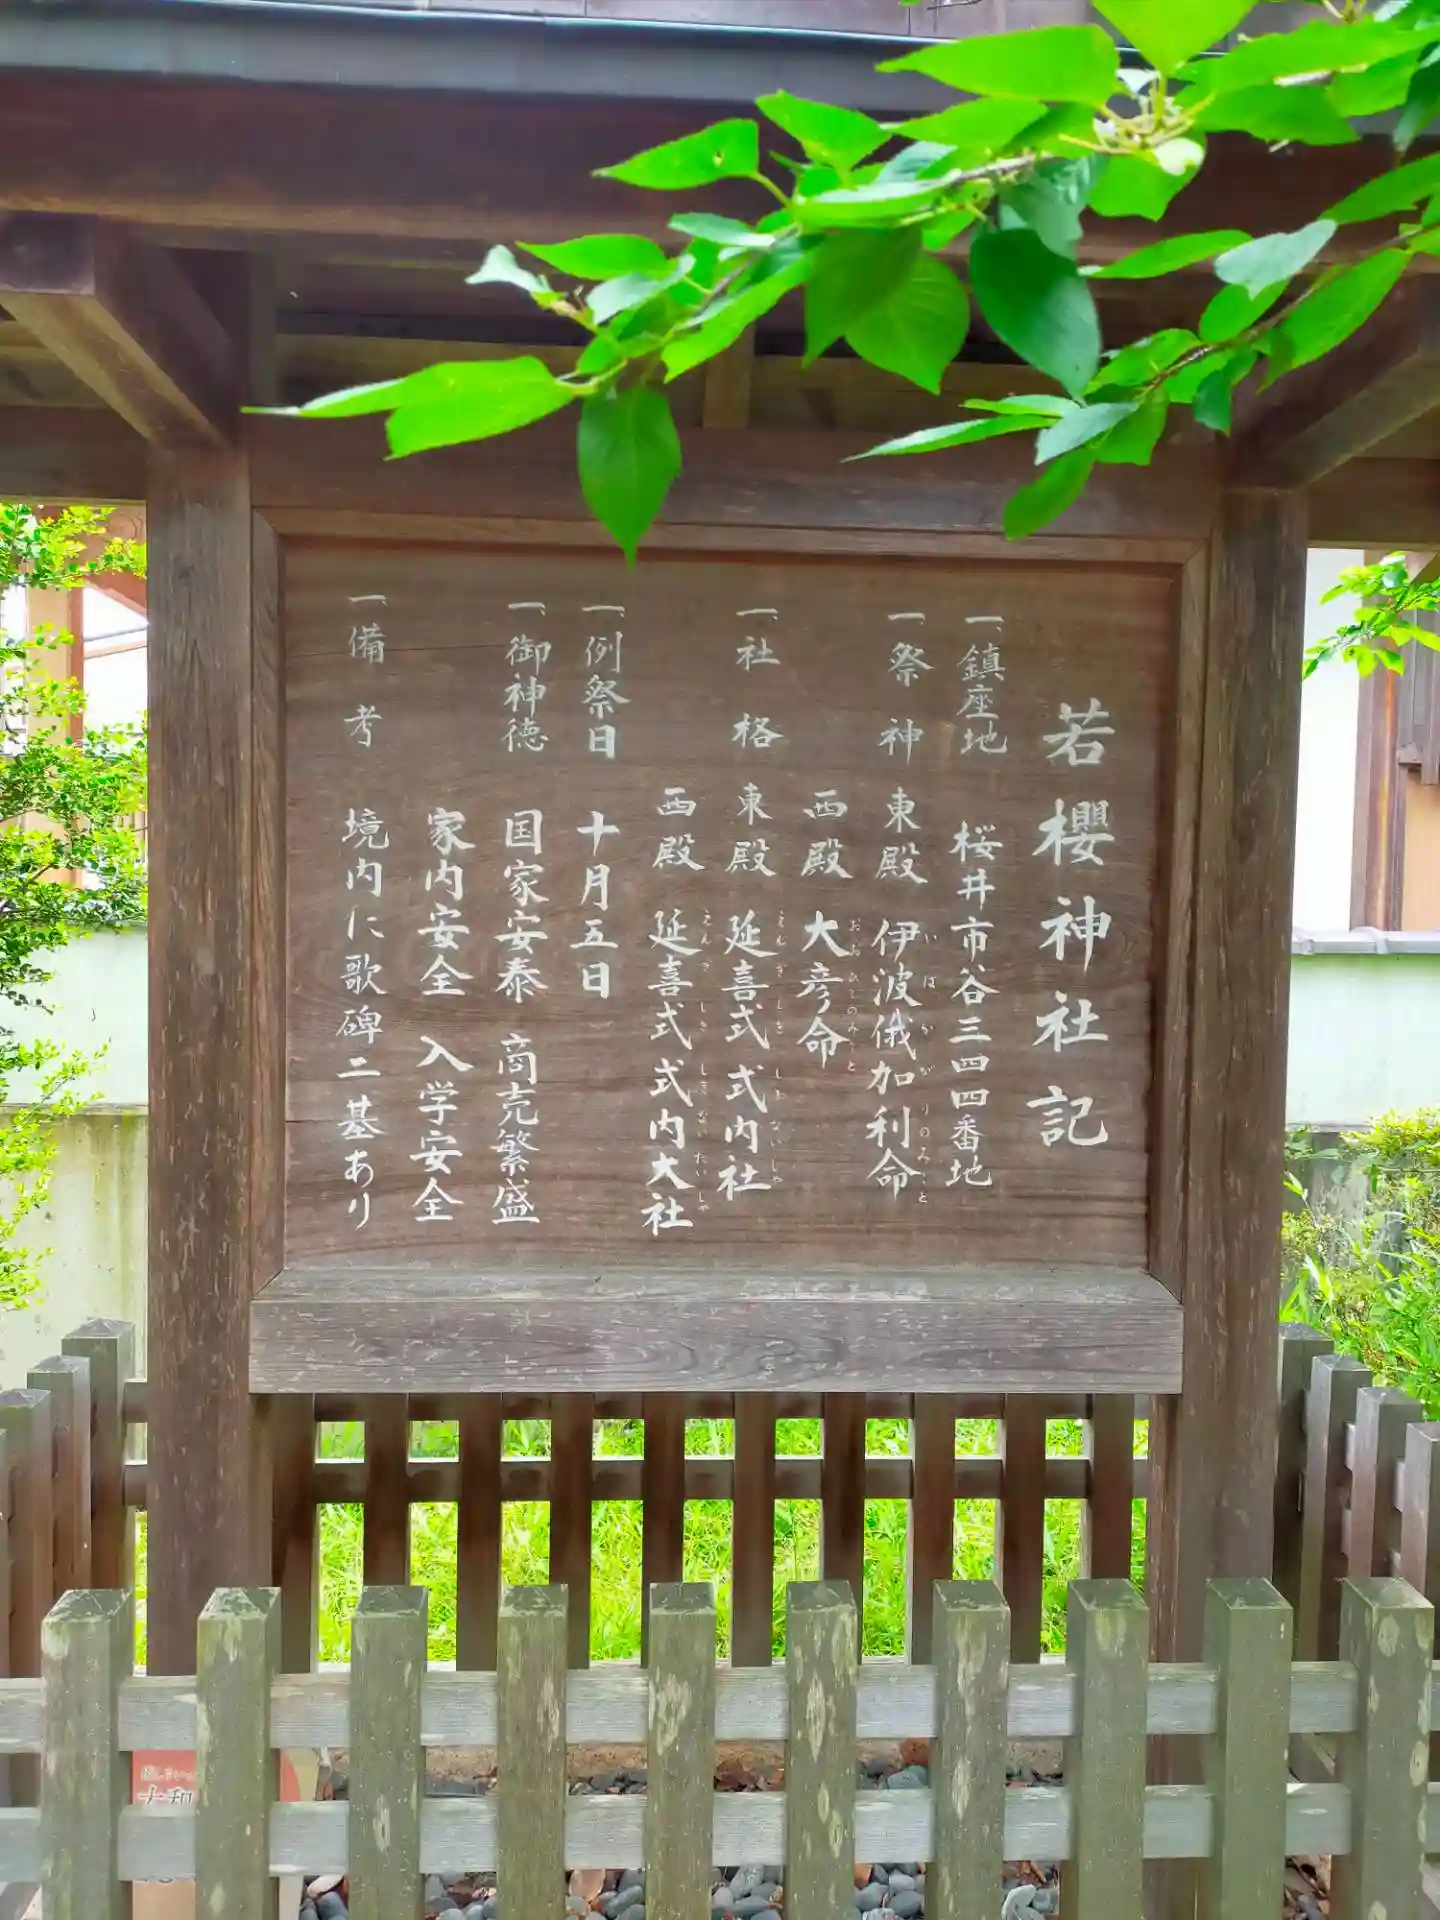 若櫻神社記
一、鎮座地 桜井市谷三四四番地
一、祭神 東殿 伊波俄加利命
いはかがりのみこと
西殿 大彦命
おおひこのみこと
一、社格 東殿 延喜式式内社
えんぎしきしきないしゃ
西殿 延喜式式内大社
えんぎしきしきないたいしゃ
一、例祭日 十月五日
一、御神徳 国家安泰 商売繁盛
家内安全 入学安全
一、備考 境内に歌碑二基あり
大和